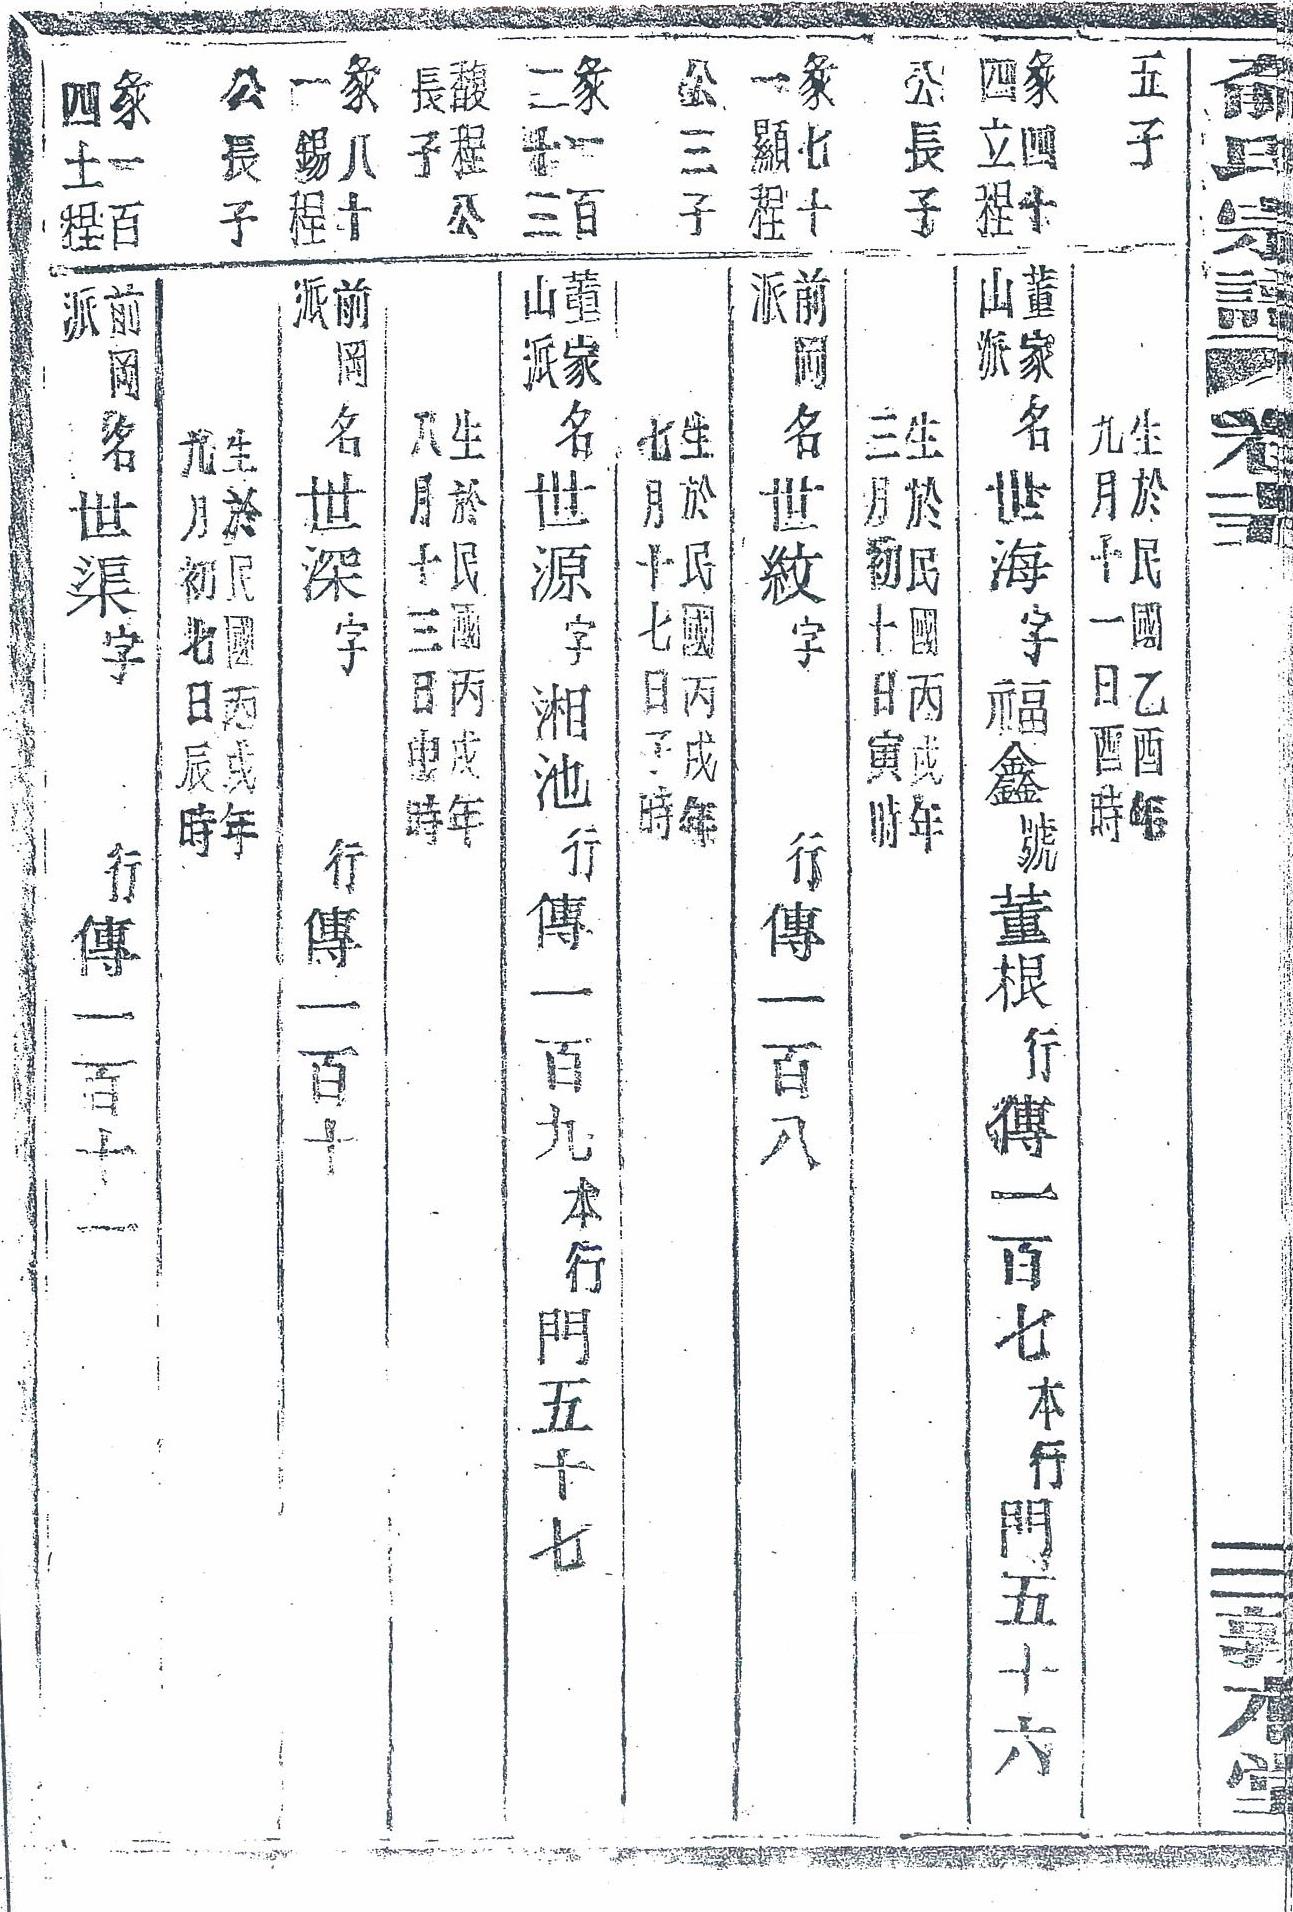 氏宗譜 卷三 三 本堂
五子
生於民國乙酉年
九月十一日酉時
彖四十
四立程
董家
山派
名世海字福鑫號董根行傳一百七本行門五十六
公長子
生於民國丙戌年
三月初十日寅時
彖七十
一顯程
前岡
派
名世紋字 行傳一百八
公三子
生於民國丙戌年
七月十七日子時
彖一百
二十三
董家
山派
名世源字湘池行傳一百九本行門五十七
馥程公
長子
生於民國丙戌年
八月十三日申時
彖八十
一錫程
前岡
派
名世深字 行傳一百十
公長子
生於民國丙戌年
九月初七日辰時
彖一百
四土程
前岡
派
名世渠字 行傳一百十一